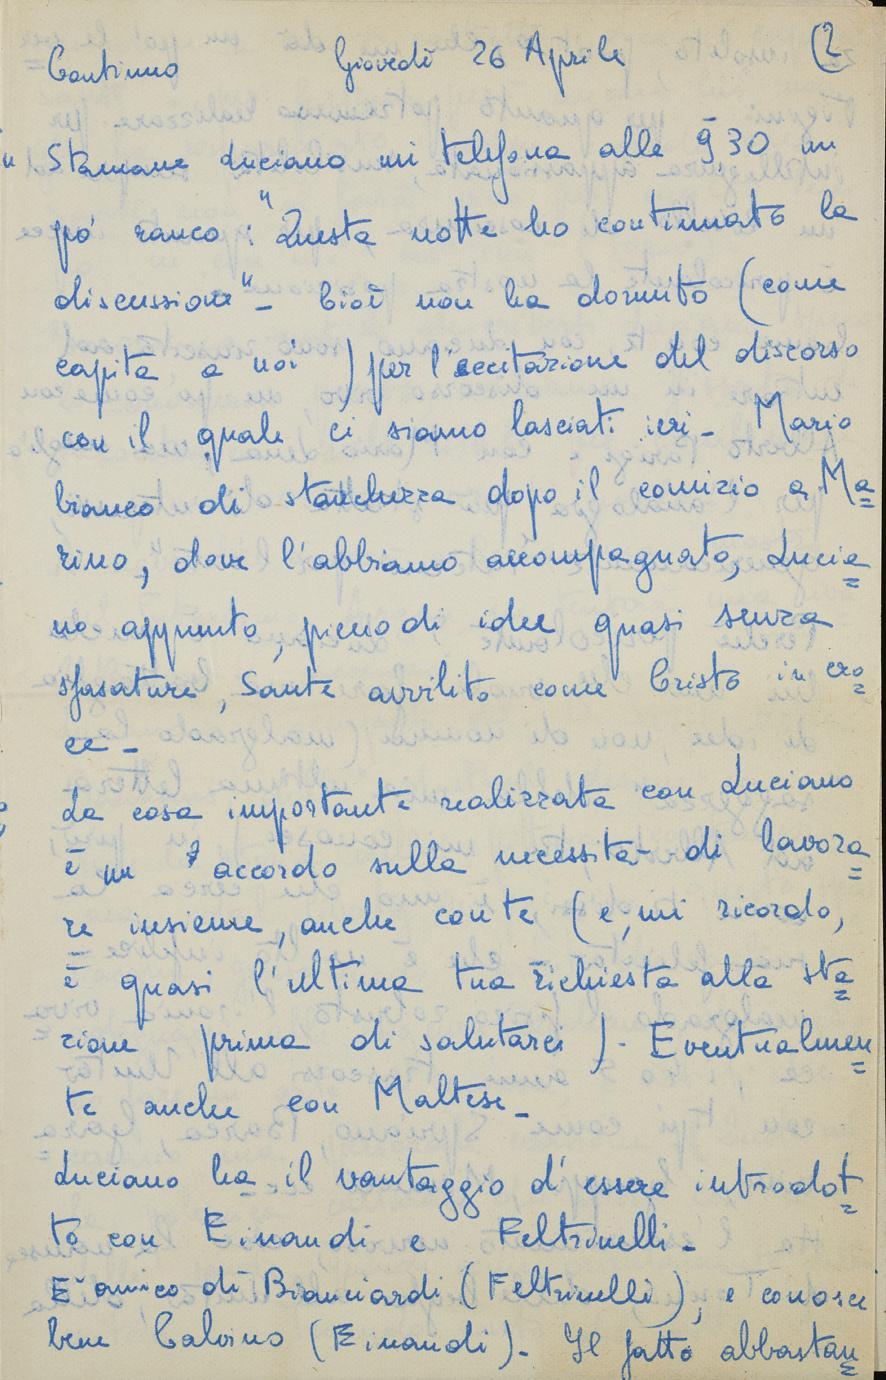 Continuo Giovedì 26 Aprile (2
Stamane Luciano mi telefona alle 9 30 un
pó rauco: "Questa notte ho continuato la
discussione" - Cioè non ha dormito (come
capita a noi) per l'eccitazione del discorso
con il quale ci siamo lasciati ieri - Mario
bianco di stanchezza dopo il comizio a Ma=
rino, dove l'abbiamo accompagnato, Lucia=
no appunto, pieno di idee quasi senza
sfasature, Sante avvilito come Cristo in cro=
ce -
La cosa importante realizzata con Luciano
è un accordo sulla necessità di lavora=
re insieme, anche con te (e, mi ricordo,
è quasi l'ultima tua richiesta alla sta=
zione prima di salutarci). Eventualmen=
te anche con Maltese -
Luciano ha il vantaggio d'essere introdot=
to con Einaudi e Feltrinelli -
E' amico di Bianciardi (Feltrinelli), e conosce
bene Calvino (Einaudi) - Il fatto abbastan=